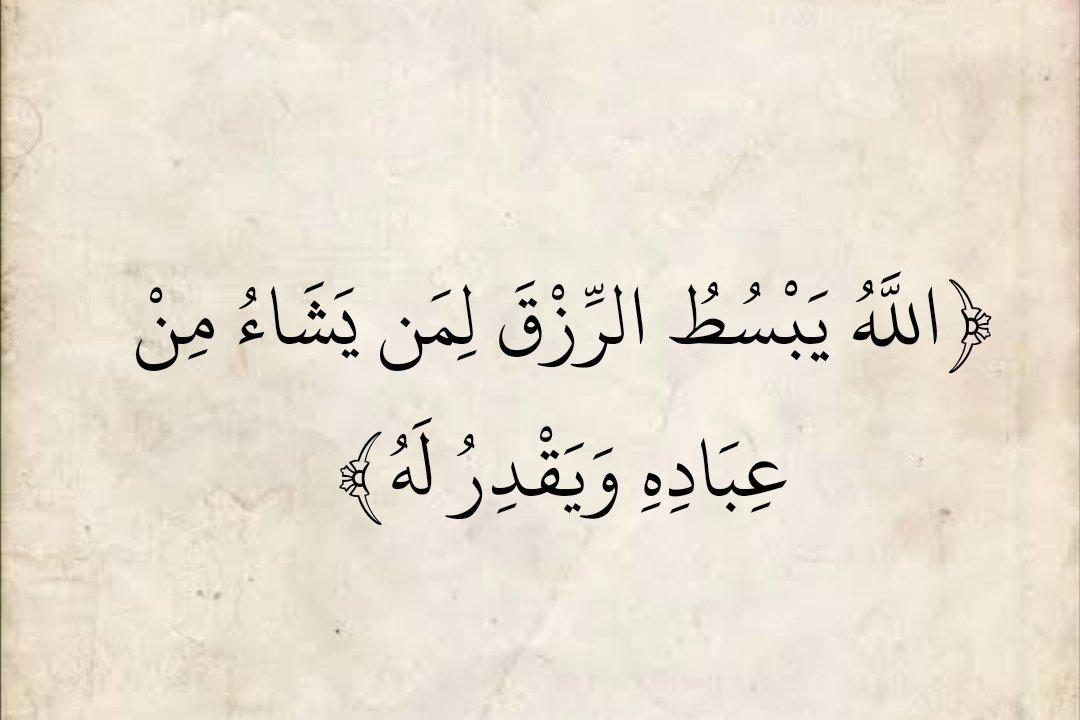 ﴿اللَّهُ يَبْسُطُ الرِّزْقَ لِمَن يَشَاءُ مِنْ
عِبَادِهِ وَيَقْدِرُ لَهُ﴾